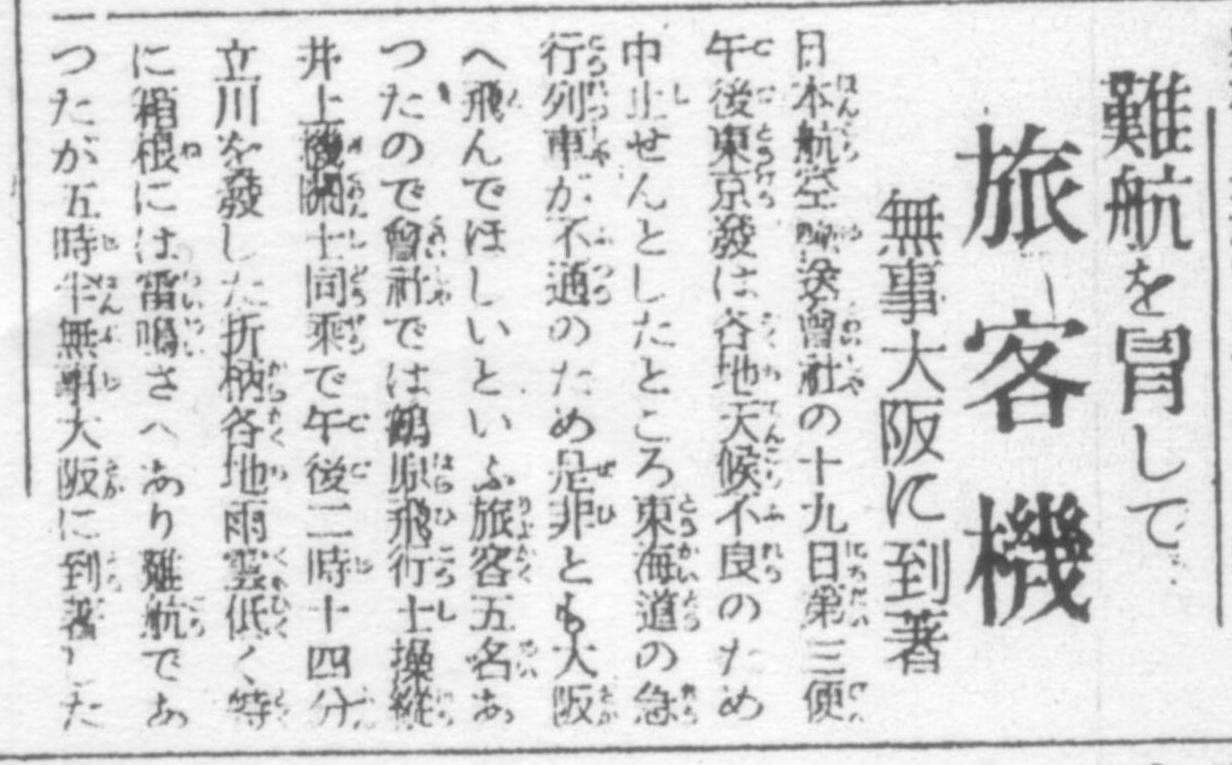 難航を冒して
旅客機
無事大阪に到著
日本航空輸送會社の十九日第三便
午後東京發は各地天候不良のため
中止せんとしたところ東海道の急
行列車が不通のため是非とも大阪
へ飛んでほしいといふ旅客五名あ
つたので會社では鶴原飛行士操縱
井上機關士同乘で午後二時十四分
立川を發した折柄各地雨雲低く特
に箱根には雷鳴さへあり難航であ
つたが五時半無事大阪に到著した